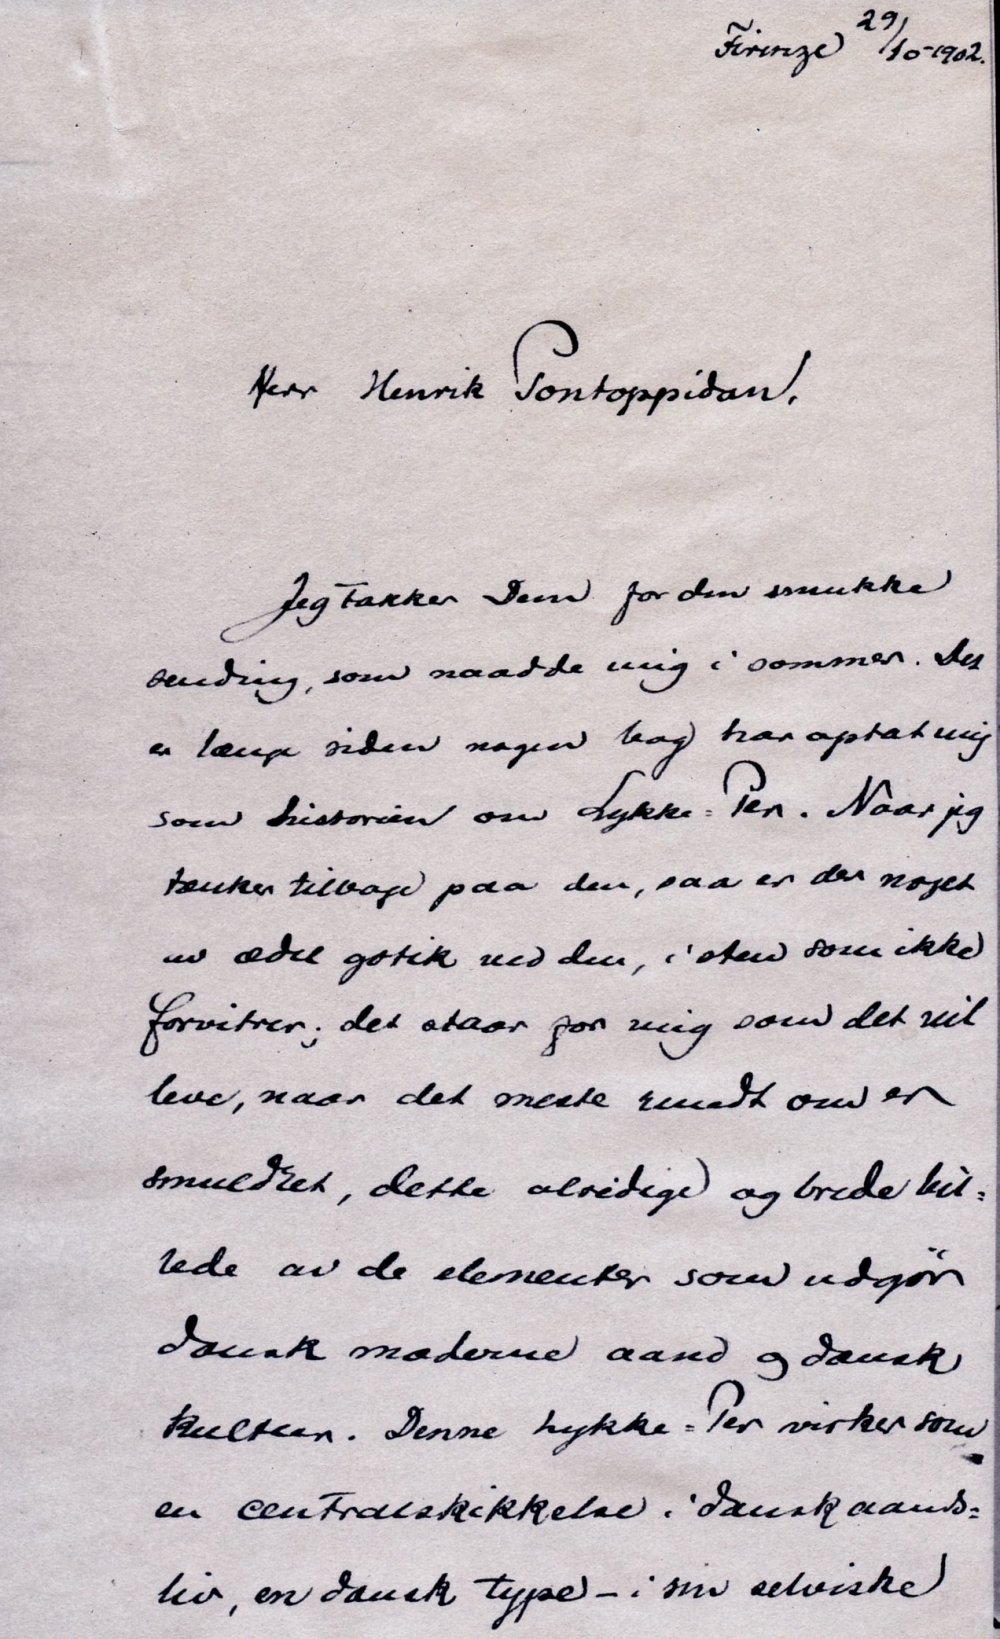 Firenze 29/10-1902.
Herr Henrik Pontoppidan.
Jeg takker Dem for den smukke
sending, som naadde mig i sommer. Det
er længe siden nogen bog har optat mig
som historien om Lykke=Per. Naar jeg
tænker tilbage paa den, saa er der noget
av ædel gotik ved den, i sten som ikke
forvitrer; det staar for mig som det vil
leve, naar det meste rundt om er
smuldret, dette alsidige og brede bil=
lede av de elementer som udgør
dansk moderne aand og dansk
kultur. Denne Lykke=Per virker som
en centralskikkelse i dansk aands=
liv, en dansk type – i sin selviske